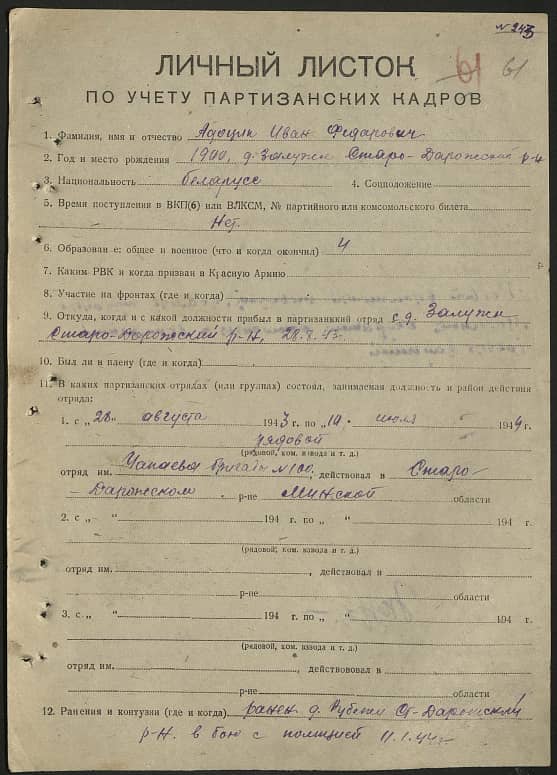 № 243
61 61
ЛИЧНЫЙ ЛИСТОК
ПО УЧЕТУ ПАРТИЗАНСКИХ КАДРОВ
1. Фамилия, имя и отчество Иван Федарович
2. Год и место рождения 1900, д. Залужи Старо-Дарожский р-н
3. Национальность беларусс 4. Соцположение
5. Время поступления в ВКП(б) или ВЛКСМ, № партийного или комсомольского билета
Нет.
6. Образован е: общее и военное (что и когда окончил) 4
7. Каким РВК и когда призван в Красную Армию
8. Участие на фронтах (где и когда)
9. Откуда, когда и с какой должности прибыл в партизанкий отряд с д. Залужи
Старо-Дарожский р-н, 28.8.43
10. Был ли в плену (где и когда)
11. В каких партизанских отрядах (или группах) состоял, занимаемая должность и район действия
отряда:
1. с „ 28 " августа 1943 г. по „ 10 " июля 1944 г.
рядовой
(рядовой, ком. взвода и т. д.)
отряд им. Чапаева бригады №100, действовал в Старо-
Дарожском р-не Минской области
2. с „ " 194 г. по „ " 194 г.
(рядовой, ком. взвода и т. д.)
отряд им. , действовал в
р-не области
3. с „ " 194 г. по „ " 194 г.
(рядовой, ком. взвода и т. д.)
отряд им. , действововал в
р-не области
12. Ранения и контузии (где и когда) ранен д. Ст-Дарожский
р-н. в бою с полицией 11.1.44г.